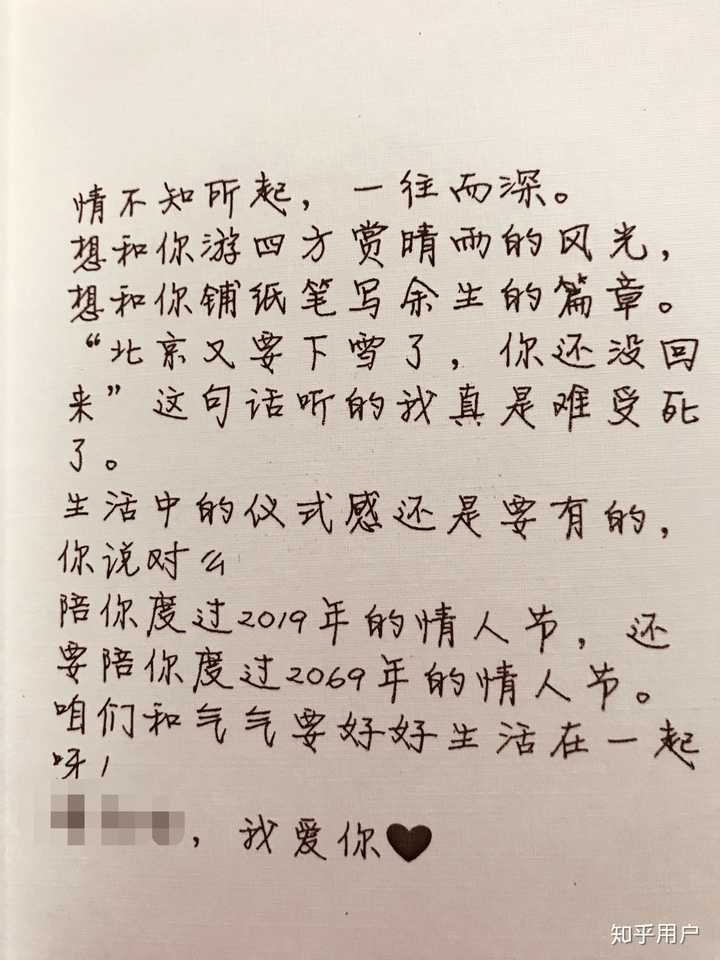 情不知所起，一往而深。
想和你游四方赏晴雨的风光，
想和你铺纸笔写余生的篇章。
“北京又要下雪了，你还没回
来”这句话听的我真是难受死
了。
生活中的仪式感还是要有的，
你说对么
陪你度过2019年的情人节，还
要陪你度过2069年的情人节。
咱们和气气要好好生活在一起
呀！
，我爱你♥
知乎用户